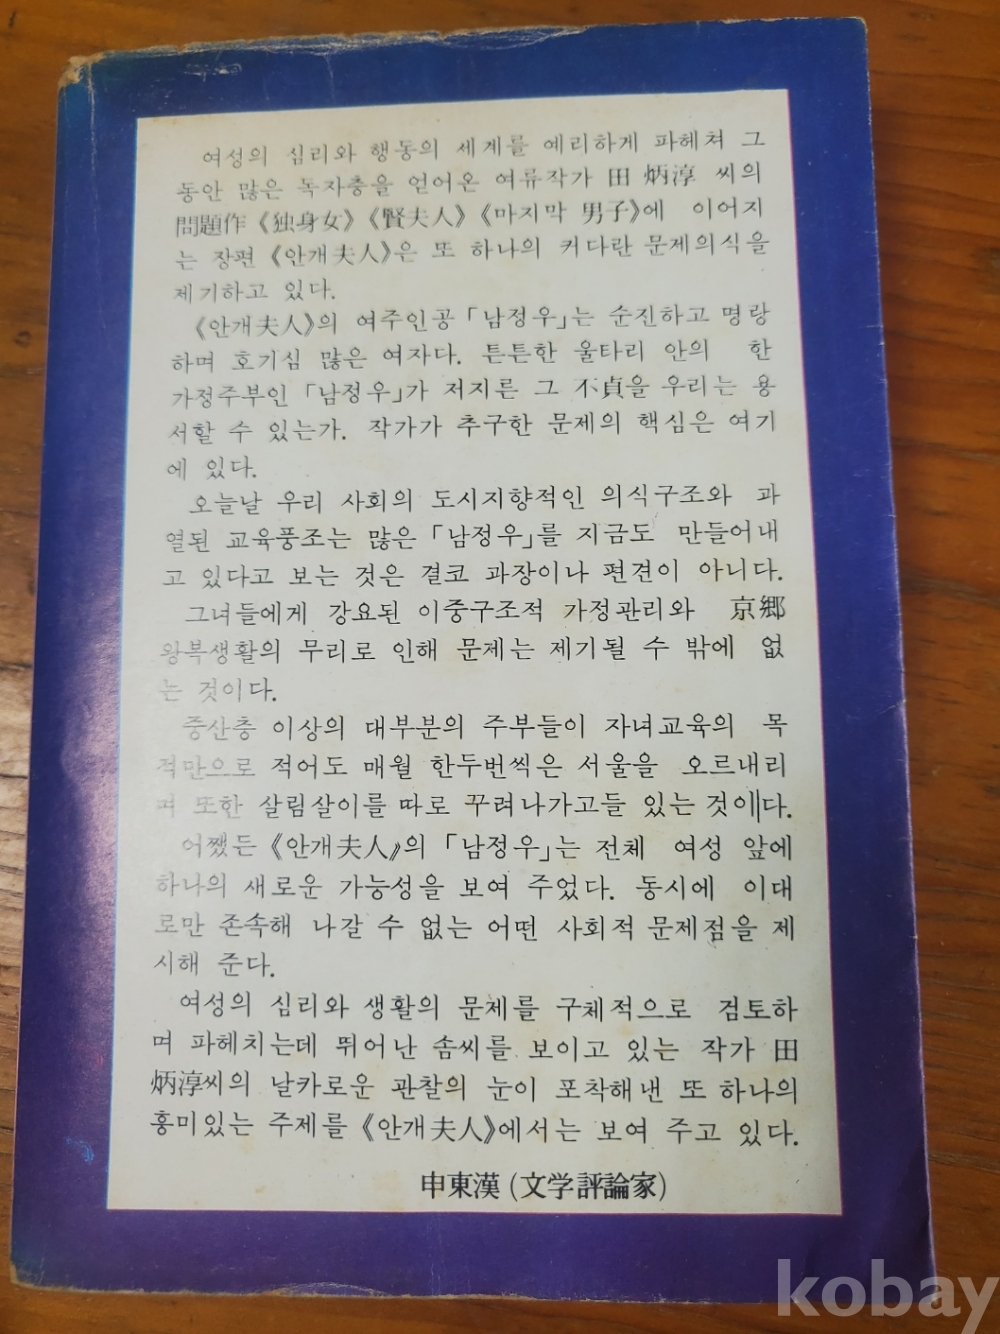 여성의 심리와 행동의 세계를 예리하게 파헤쳐 그
동안 많은 독자층을 얻어온 여류작가 田 炳淳 씨의
問題作《独身女》《賢夫人》《마지막 男子》에 이어지
는 장편《안개夫人》은 또 하나의 커다란 문제의식을
제기하고 있다.
《안개夫人》의 여주인공「남정우」는 순진하고 명랑
하며 호기심 많은 여자다. 튼튼한 울타리 안의 한
가정주부인「남정우」가 저지른 그 不貞을 우리는 용
서할 수 있는가. 작가가 추구한 문제의 핵심은 여기
에 있다.
오늘날 우리 사회의 도시지향적인 의식구조와 과
열된 교육풍조는 많은「남정우」를 지금도 만들어내
고 있다고 보는 것은 결코 과장이나 편견이 아니다.
그녀들에게 강요된 이중구조적 가정관리와 京鄕
왕복생활의 무리로 인해 문제는 제기될 수 밖에 없
는 것이다.
중산층 이상의 대부분의 주부들이 자녀교육의 목
적만으로 적어도 매월 한두번씩은 서울을 오르내리
며 또한 살림살이를 따로 꾸려나가고들 있는 것이다.
어쨌든《안개夫人》의「남정우」는 전체 여성 앞에
하나의 새로운 가능성을 보여 주었다. 동시에 이대
로만 존속해 나갈 수 없는 어떤 사회적 문제점을 제
시해 준다.
여성의 심리와 생활의 문제를 구체적으로 검토하
며 파헤치는데 뛰어난 솜씨를 보이고 있는 작가 田
炳淳씨의 날카로운 관찰의 눈이 포착해낸 또 하나의
흥미있는 주제를《안개夫人》에서는 보여 주고 있다.
申東漢 (文学評論家)
kobay